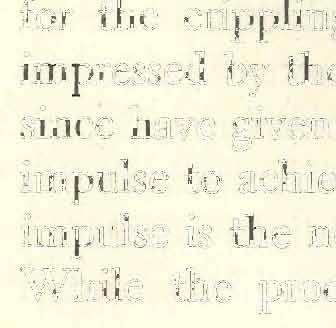 for the crippling
impressed by the
since have given
impulse to achie
impulse is the n
While the proc